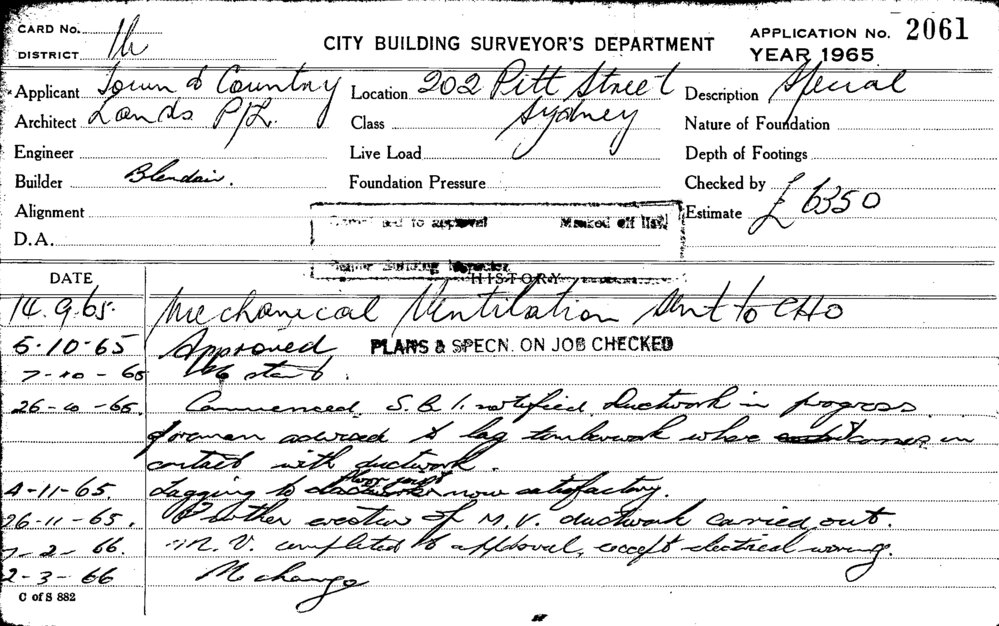 CARD No.
DISTRICT 1b
CITY BUILDING SURVEYOR'S DEPARTMENT
APPLICATION No. 2061
YEAR 1965
Applicant Town & Country
Location 202 Pitt Street
Description Special
Architect Lands P/L.
Class Sydney
Nature of Foundation
Engineer
Live Load
Depth of Footings
Builder Blendair.
Foundation Pressure
Checked by
Alignment
to approval Marked off list
Estimate £6350
D.A.
Senior Building Inspector
DATE HISTORY
14.9.65. Mechanical Ventilation sent to CHO
5-10-65 Approved PLANS & SPECN. ON JOB CHECKED
7-10-65 start.
26-10-65. Commenced. S.B.I. notified. Ductwork in progress.
foreman advised to lag timberwork where comes in
contact with ductwork.
4-11-65. Lagging to floor joist now satisfactory.
26-11-65. Further erection of M.V. ductwork carried out.
-2-66. M.V. completed to approval, except electrical wiring.
2-3-66 No change
C of S 882